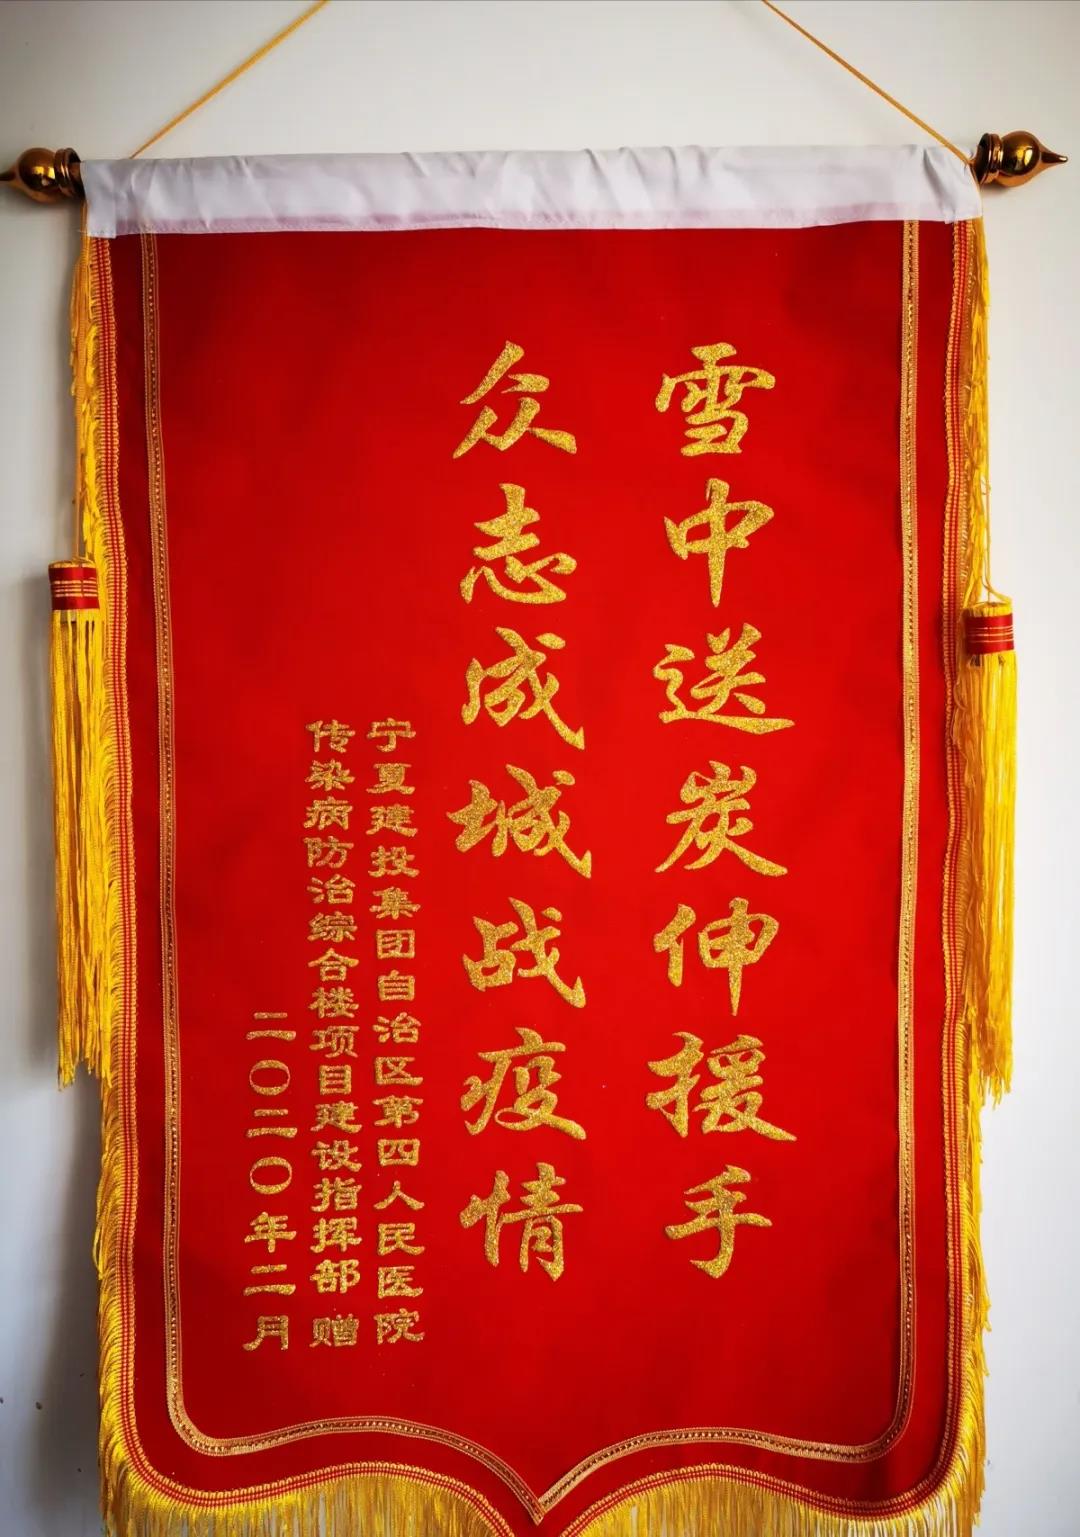 雪中送炭伸援手
众志成城战疫情
宁夏建投集团自治区第四人民医院
传染病防治综合楼项目建设指挥部 赠
二〇二〇年二月